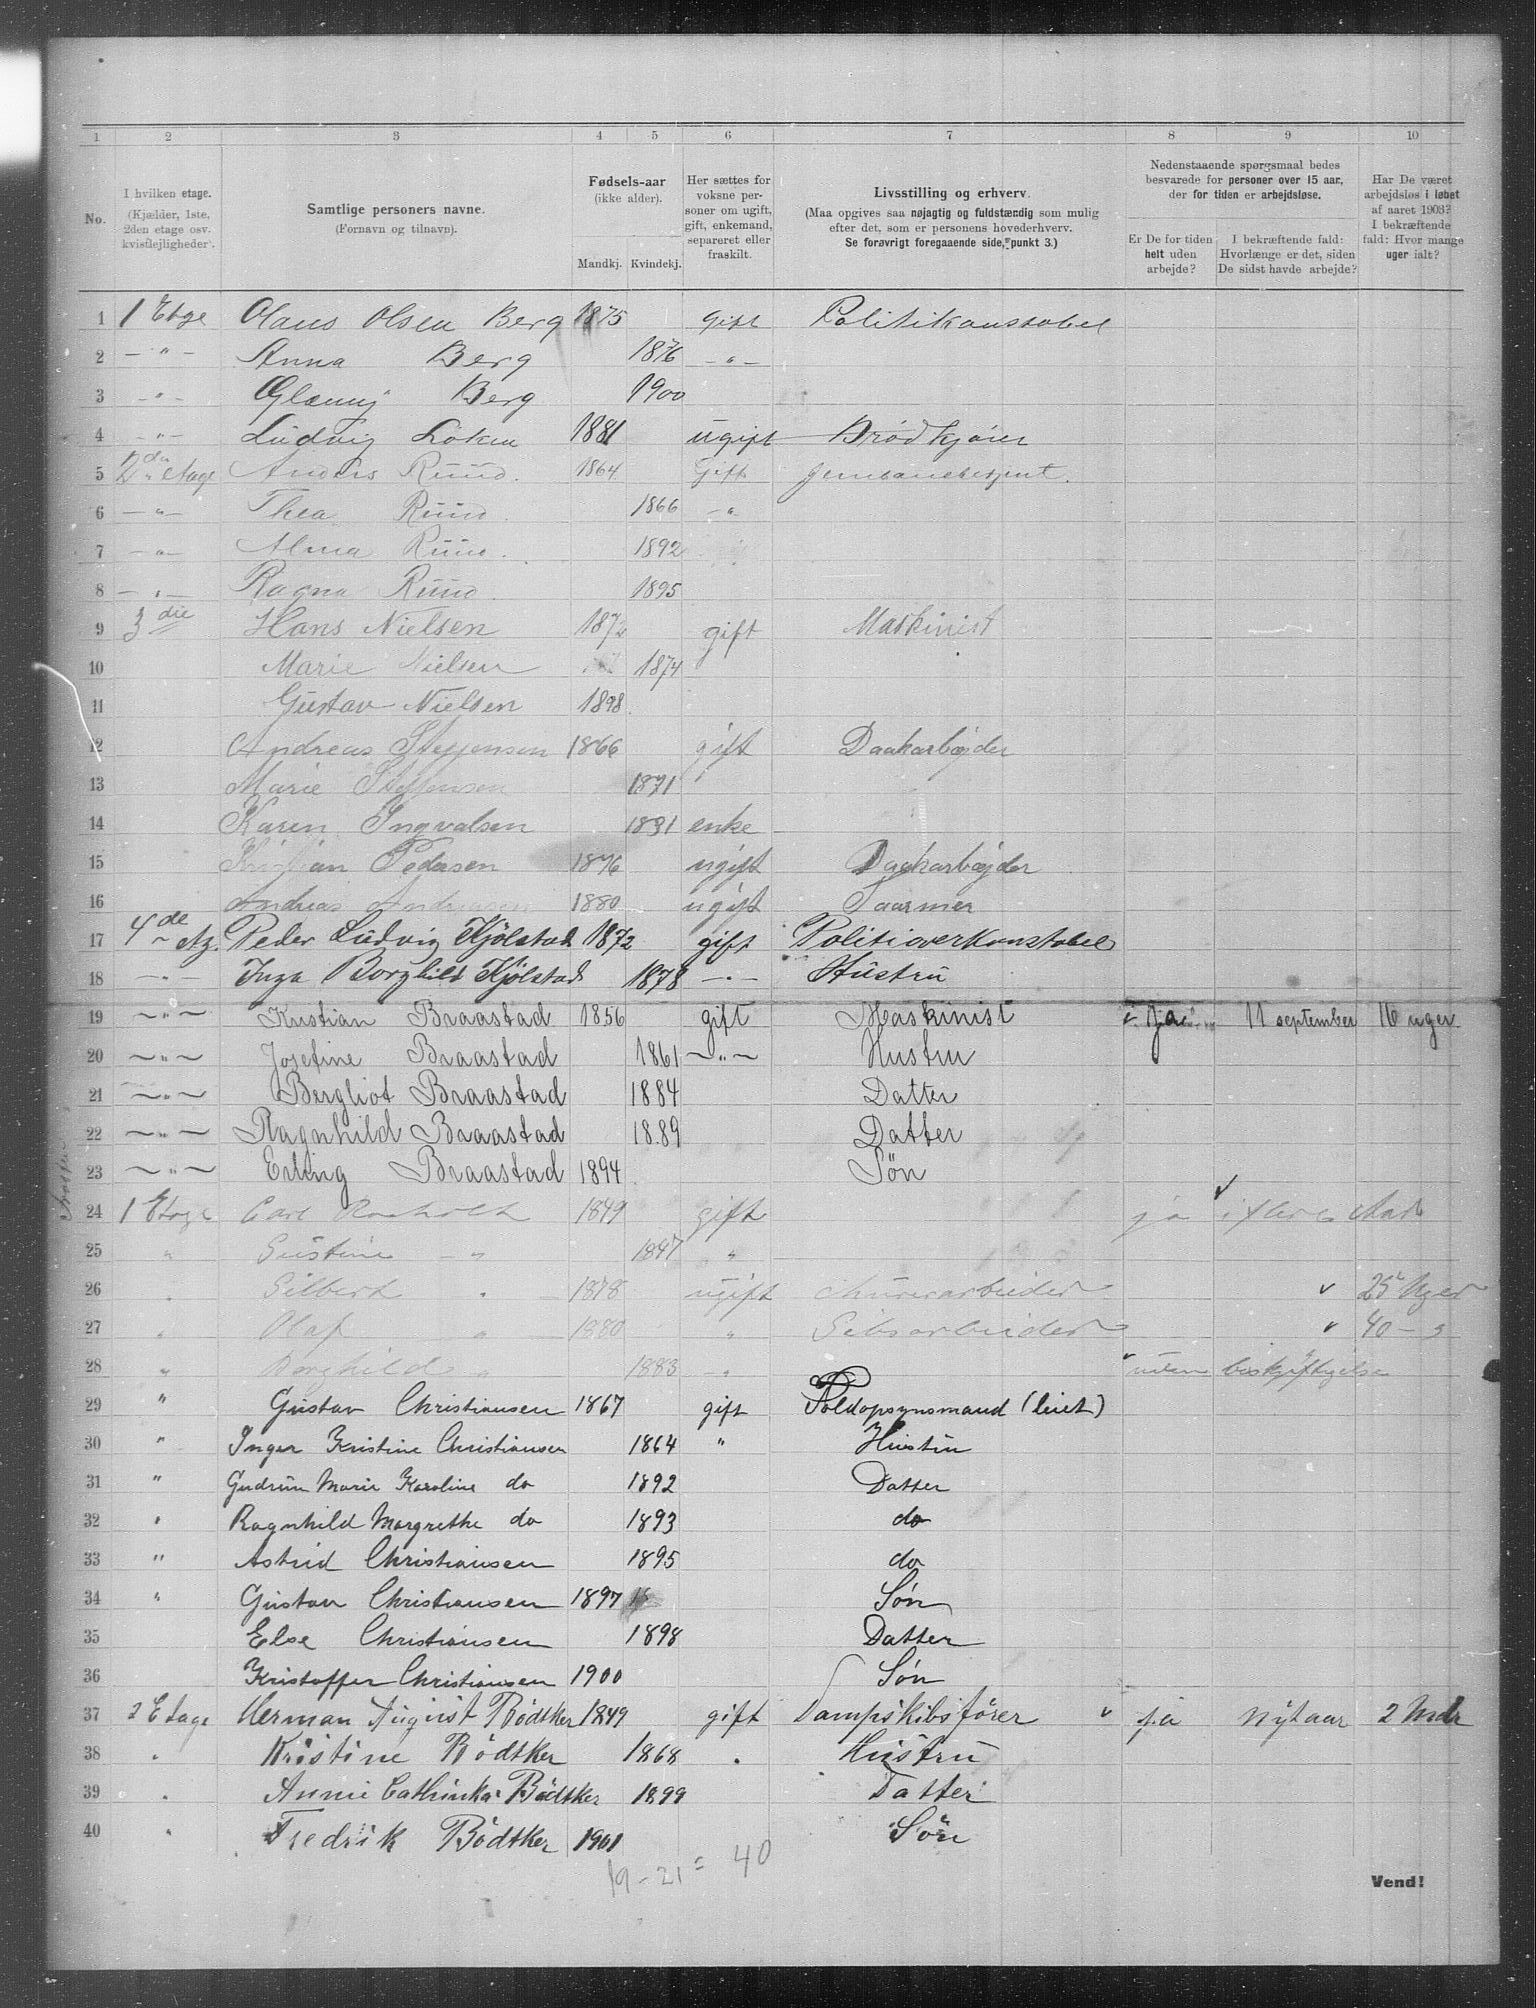 1 2 3 4 5 6 7 8 9 10
No. I hvilken etage. (Kjælder, 1ste, 2den etage osv. kvistlejligheder). Samtlige personers navne. (Fornavn og tilnavn). Fødsels-aar (ikke alder). Mandkj. Kvindekj. Her sættes for voksne personer om ugift, gift, enkemand, separeret eller fraskilt. Livsstilling og erhverv. (Maa opgives saa nøjagtig og fuldstændig som mulig efter det, som er personens hovederhverv. Se forøvrigt foregaaende side, punkt 3.) Nedenstaaende spørgsmaal bedes besvarede for personer over 15 aar, der for tiden er arbejdsløse. Er De for tiden helt uden arbejde? I bekræftende fald: Hvorlænge er det, siden De sidst havde arbejde? Har De været arbejdsløs i løbet af aaret 1903? I bekræftende fald: Hvor mange uger ialt?
1 1 Etge Olaus Olsen Berg 1875 gift Politikonstabel
2 — " — Anna Berg 1876 — " —
3 — " — Berg 1900
4 — " — Ludvig Löken 1881 ugift Brödkjörer
5 2 den etage Anders Ruud. 1864 Gift
6 — " — Thea Ruud. 1866 — "
7 — " — Alma Ruud. 1892
8 — " — Ragna Ruud. 1895
9 3 die Hans Nielsen 1872 gift Maskinist
10 Marie Nielsen 1874
11 Gustav Nielsen 1898
12 Andreas Steffensen 1866 gift
13 Marie Steffensen 1871
14 Karen Ingvalsen enke
15 Kristian Pedersen 1876 ugift
16 Andreas Andreasen 1880 ugift
17 4 de etg. Peder Ludvig Kjölstad 1872 gift Politioverkonstabel
18 — " — Inga Borghild Kjölstad 1878 — " — Hustru
19 — " — Kristian Braastad 1856 gift Maskinist ja 11 september 16 uger
20 — " — Josefine Braastad 1861 — " — Hustru
21 — " — Bergliot Braastad 1884 Datter
22 — " — Ragnhild Braastad 1889 Datter
23 — " — Erling Braastad 1894 Søn
24 1 Etage Carl 1849 gift ja
25 " — " 1847 "
26 " " 1878 ugift Murerarbeider 25 Uger
27 " Olaf " 1880 " Gibsarbeider 40 — "
28 " Borghild " 1883 — " uden beskjæftigelse
29 " Gustav Christiansen 1867 gift Toldopsynsmand (leiet)
30 " Inger Kristine Christiansen 1864 " Hustru
31 " Gudrun Marie Karoline do 1892 Datter
32 " Ragnhild Margrethe do 1893 do
33 " Astrid Christiansen 1895 do
34 " Gustav Christiansen 1897 Søn
35 Else Christiansen 1898 Datter
36 Kristoffer Christiansen 1900 Søn
37 2 Etage Herman August Bödtker 1849 gift Dampskibsförer ja nytaar 2 Mdr
38 " Kristine Bödtker 1868 " Hustru
39 " Annie Cathinka Bödtker 1899 Datter
40 " Fredrik Bödtker 1901 Sön
19 - 21 = 40
Vend!